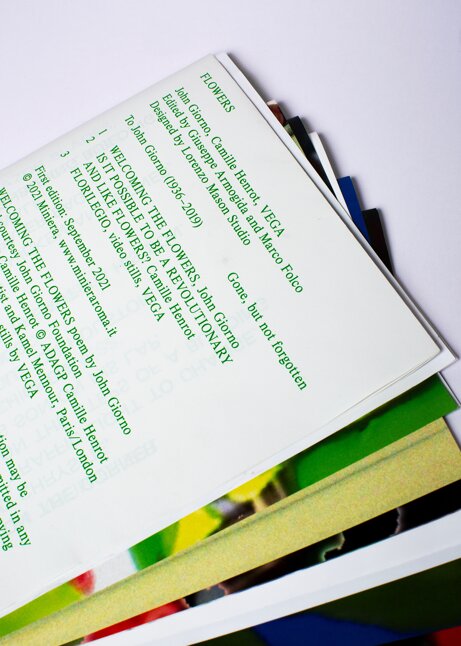 FLOWERS
John Giorno, Camille Henrot, VEGA
Edited by Giuseppe Armogida and Marco Folco
Designed by Lorenzo Mason Studio
To John Giorno (1936–2019)
Gone, but not forgotten
1 WELCOMING THE FLOWERS, John Giorno
2 IS IT POSSIBLE TO BE A REVOLUTIONARY
AND LIKE FLOWERS? Camille Henrot
3 FLORILEGIO, video stills, VEGA
First edition: September 2021
© 2021 Miniera, www.minieraroma.it
WELCOMING THE FLOWERS poem by John Giorno
courtesy John Giorno Foundation
Camille Henrot © ADAGP Camille Henrot
and Kamel Mennour, Paris/London
stills by VEGA
may be
in any